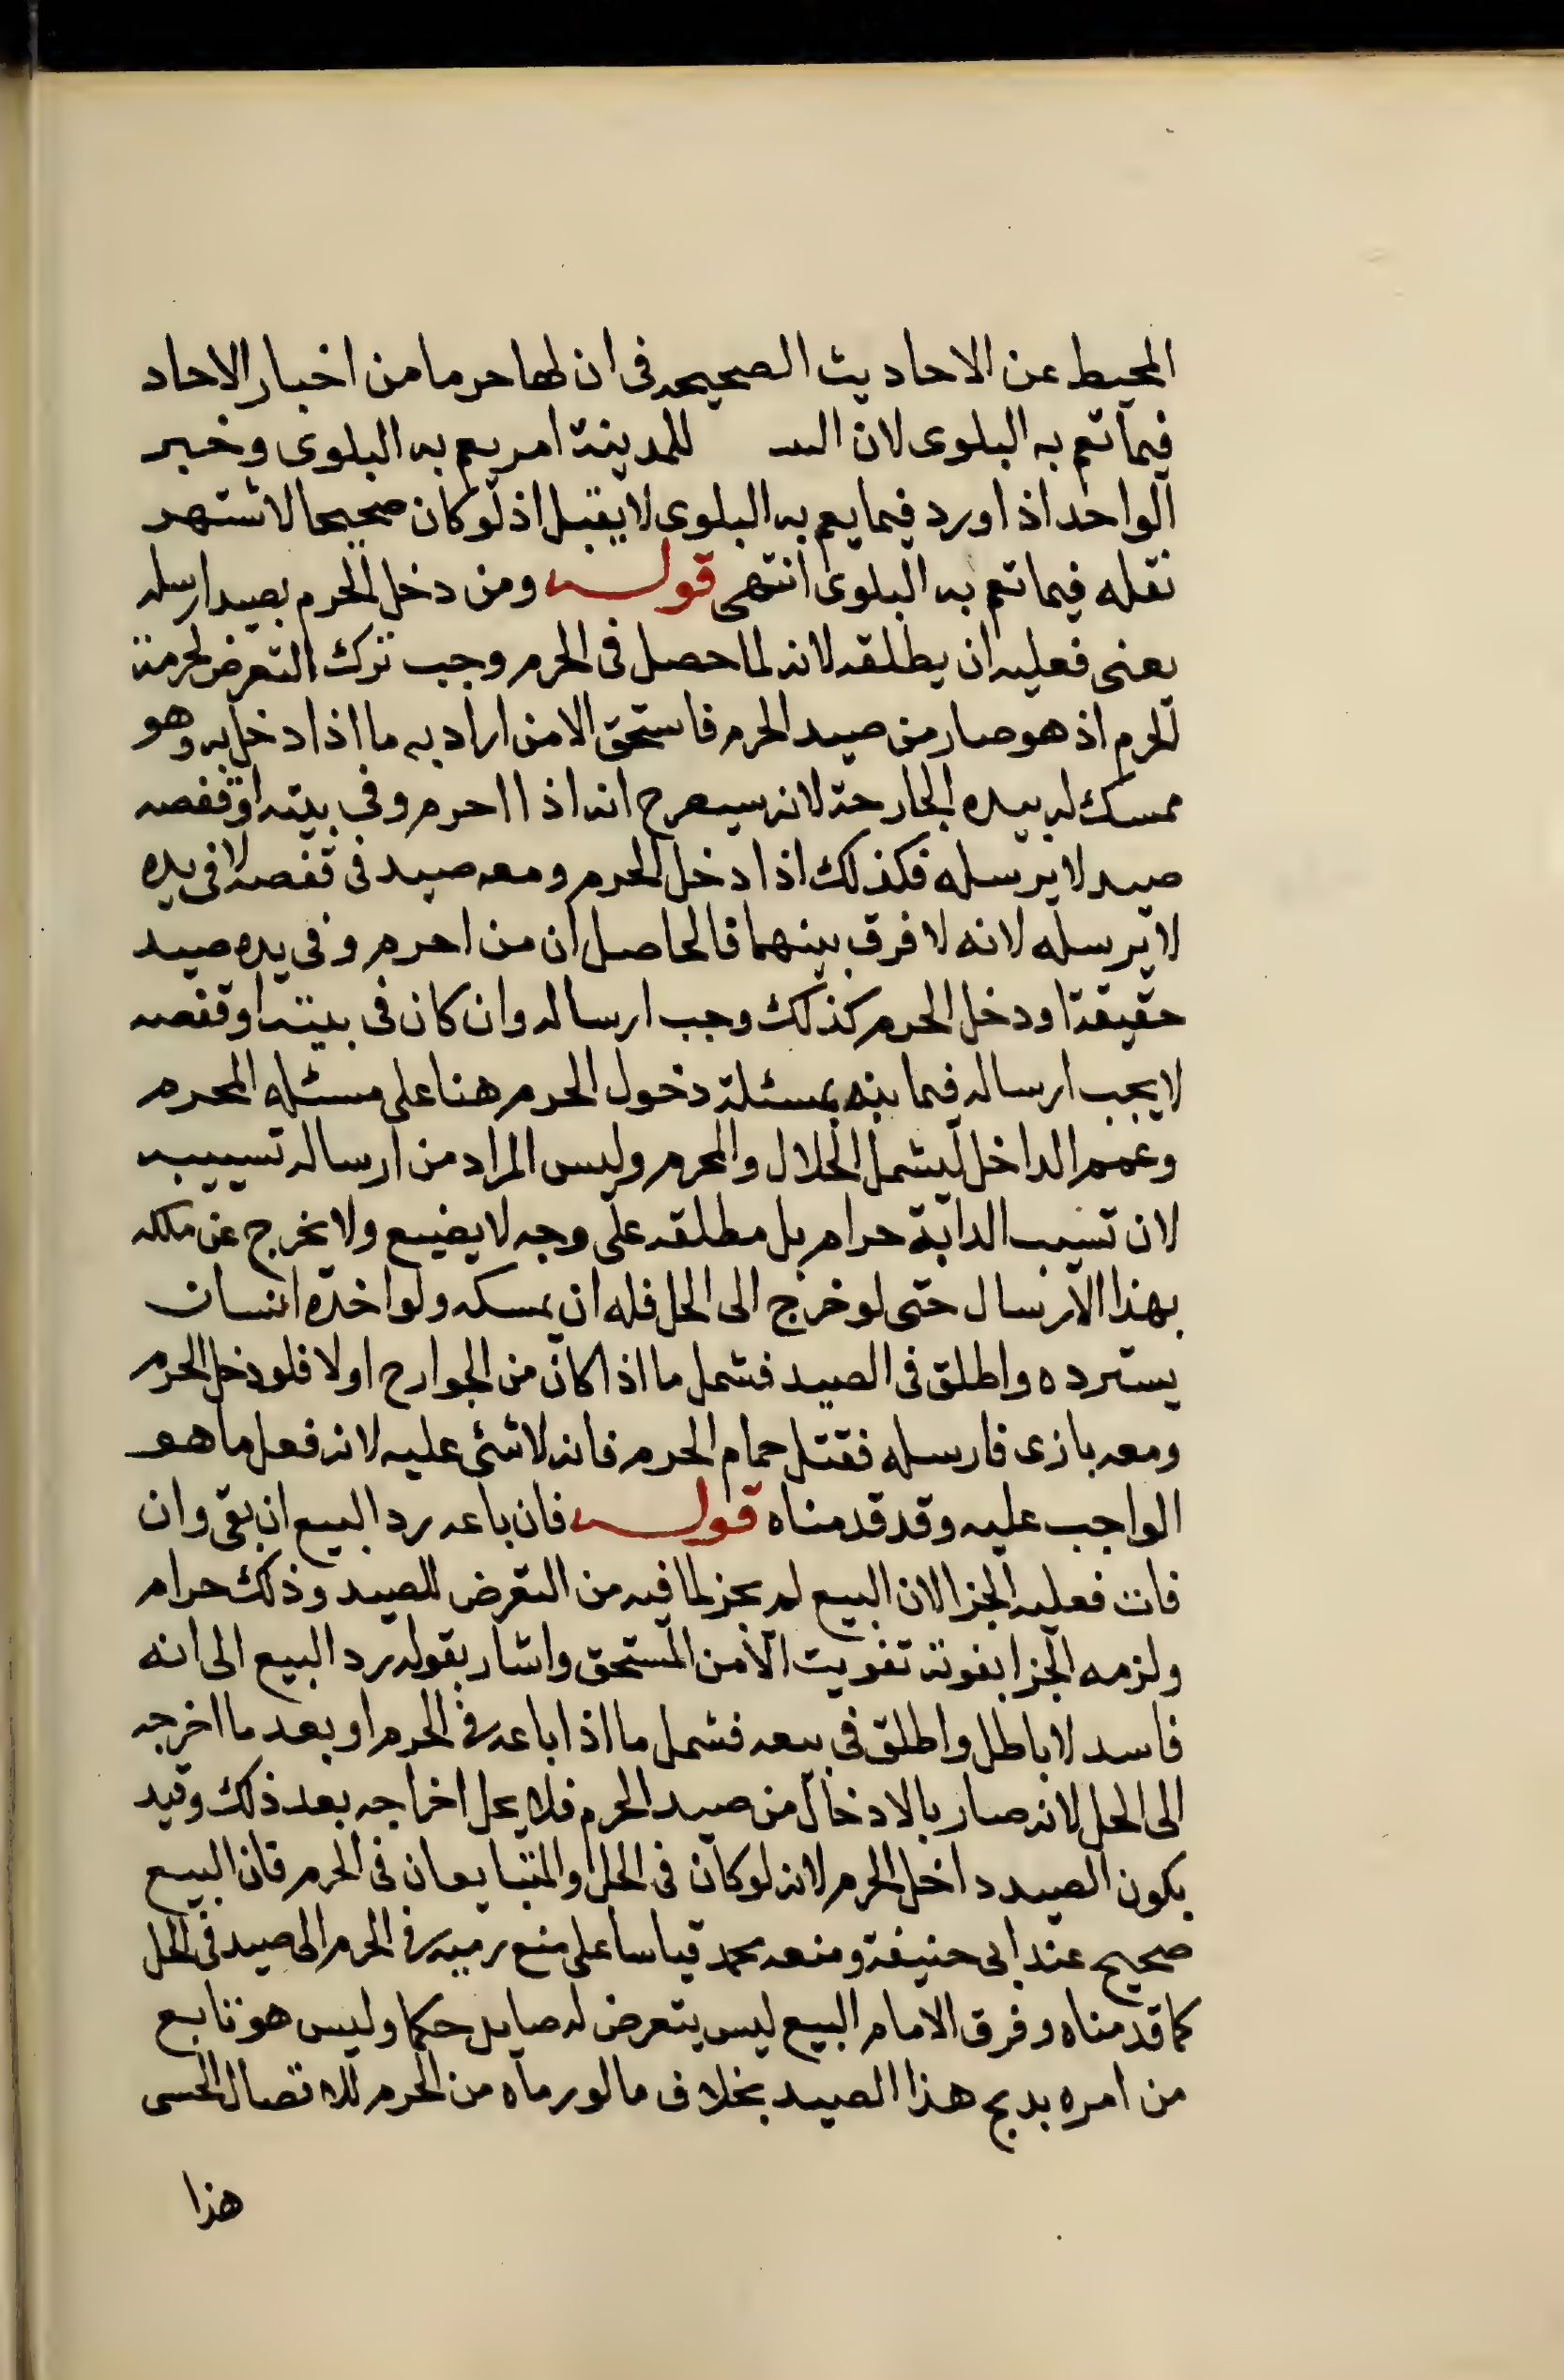 المحيط عن الاحاديث الصحيحه فى ان لها حرما من اخبار الاحاد
فيما تعم به البلوى لان للمدينة امر يعم به البلوى وخبر
الواحد اذا ورد فيما يعم به البلوى لا يقبل اذ لو كان صحيحا لاشتهر
نقله فيما تعم به البلوى انتهى قوله ومن دخل الحرم بصيد ارسله
يعنى فعليه ان يطلقه لانه لما حصل فى الحرم وجب ترك التعرض لحرمة
الحرم اذ هو صار من صيد الحرم فاستحق الامن اراد به ما اذا دخل به وهو
ممسك له بيده الجارحة لانه سيصرح انه اذا احرم وفى بيته او قفصه
صيد لا يرسله فكذلك اذا دخل الحرم ومعه صيد فى قفصه لا فى يده
لا يرسله لانه لا فرق بينهما فالحاصل ان من احرم وفى يده صيد
حقيقة او دخل الحرم كذلك وجب ارساله وان كان فى بيته او قفصه
لا يجب ارساله فيما نبه بمسئلة دخول الحرم هنا على مسئله المحرم
وعمم الداخل ليشمل الحلال والمحرم وليس المراد من ارساله تسييبه
لان تسيب الدابة حرام بل مطلقه على وجه لا يضيع ولا يخرج عن ملكه
بهذا الارسال حتى لو خرج الى الحل فله ان يمسكه ولو اخذه انسان
يسترده واطلق فى الصيد فشمل ما اذا كان من الجوارح اولا فلو دخل الحرم
ومعه بازى فارسله فقتل حمام الحرم فانه لا شئى عليه لانه فعل ما هو
الواجب عليه وقد قدمناه قوله فان باعه رد البيع ان بقى وان
فات فعليه الجزا لان البيع لم يجز لما فيه من التعرض للصيد وذلك حرام
ولزمه الجزا بفوته تفويت الامن المستحق واشار بقوله رد البيع الى انه
فاسد لا باطل واطلق فى بيعه فشمل ما اذا باعه فى الحرم او بعد ما اخرجه
الى الحل لانه صار بالادخال من صيد الحرم فلا يحل اخراجه بعد ذلك وقيد
بكون الصيد داخل الحرم لانه لو كان فى الحل والمتبايعان فى الحرم فان البيع
صحيح عند ابى حنيفة ومنعه محمد قياسا على منع رميه فى الحرم الى صيد فى الحل
كما قدمناه وفرق الامام البيع ليس بتعرض له حكما وليس هو تابع
من امره بدبح هذا الصيد بخلاف ما لو رماه من الحرم للاتصال الحسى
هذا